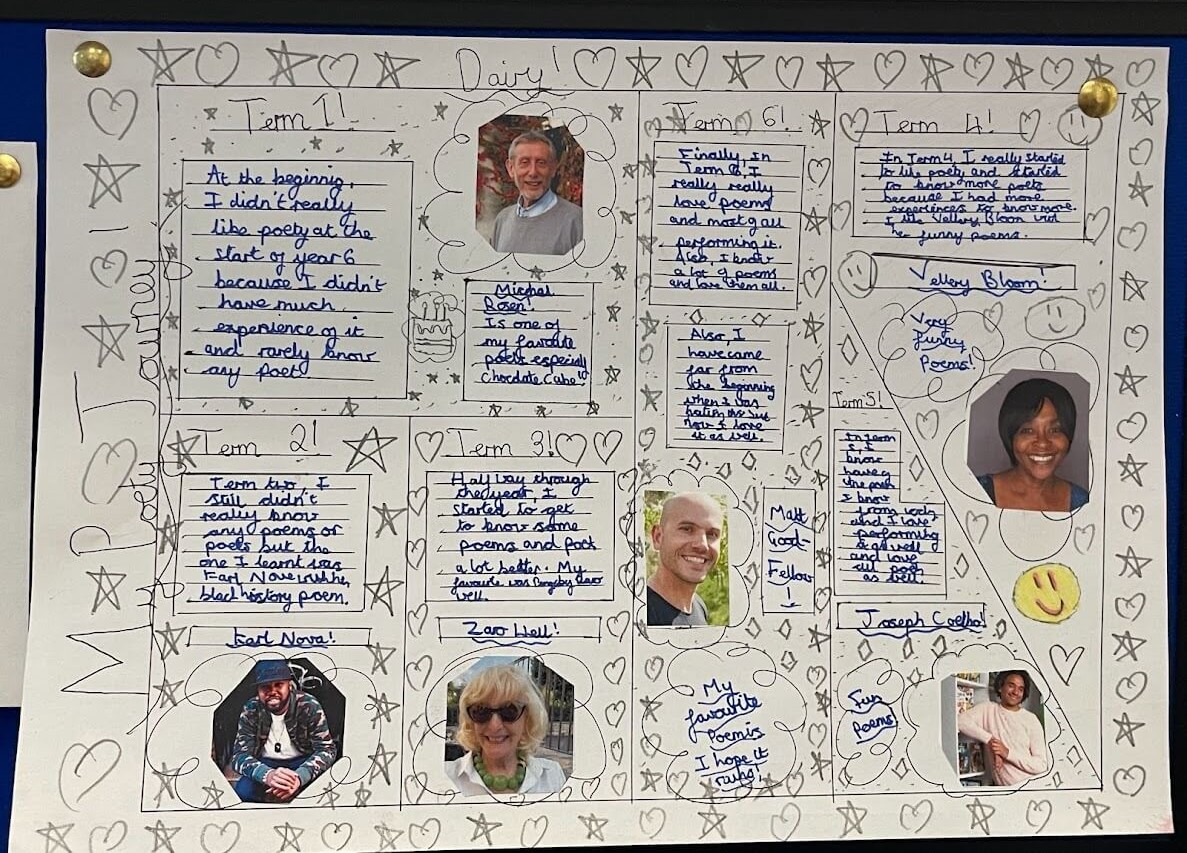 Dairy!
My Poetry Journey!
Term 1!
At the beginnig,
I didn't really
like poety at the
start of year 6
because I didn't
have much
experience of it
and rarely know
any poet
Michael
Rosen!
Is one of
my favourite
poets especially
chocolate cake!
Term 2!
Term two, I
still didn't
really know
any poems or
poets but the
one I learnt was
Earl Nova with his
black history poem.
Earl Nova!
Term 3!
Half way through
the year, I
started to get
to know some
poems and
a lot better. My
favourite was by
well.
Zaro Well!
Term 6!
Finally, in
Term 6, I
really really
love poems
and most of all
performing it.
Also, I know
a lot of poems
and love them all.
Also, I
have came
far from
the beginning
when I was
hating this but
now I love
it as well.
Matt
Good-
Fellow!
My
favourite
Poem is
I hope it
rains!
Term 4!
In Term 4, I really started
to like poety and started
to know more poets
because I had more
experiences to know more.
I like Vellery Bloom with
her funny poems.
Vellery Bloom!
Very
funny
Poems!
Term 5!
In term
5, I
know
have
the poem
I know
from
and I love
performing
it as well
and love
all poet
as well.
Joseph Coelho!
Fun
Poems!